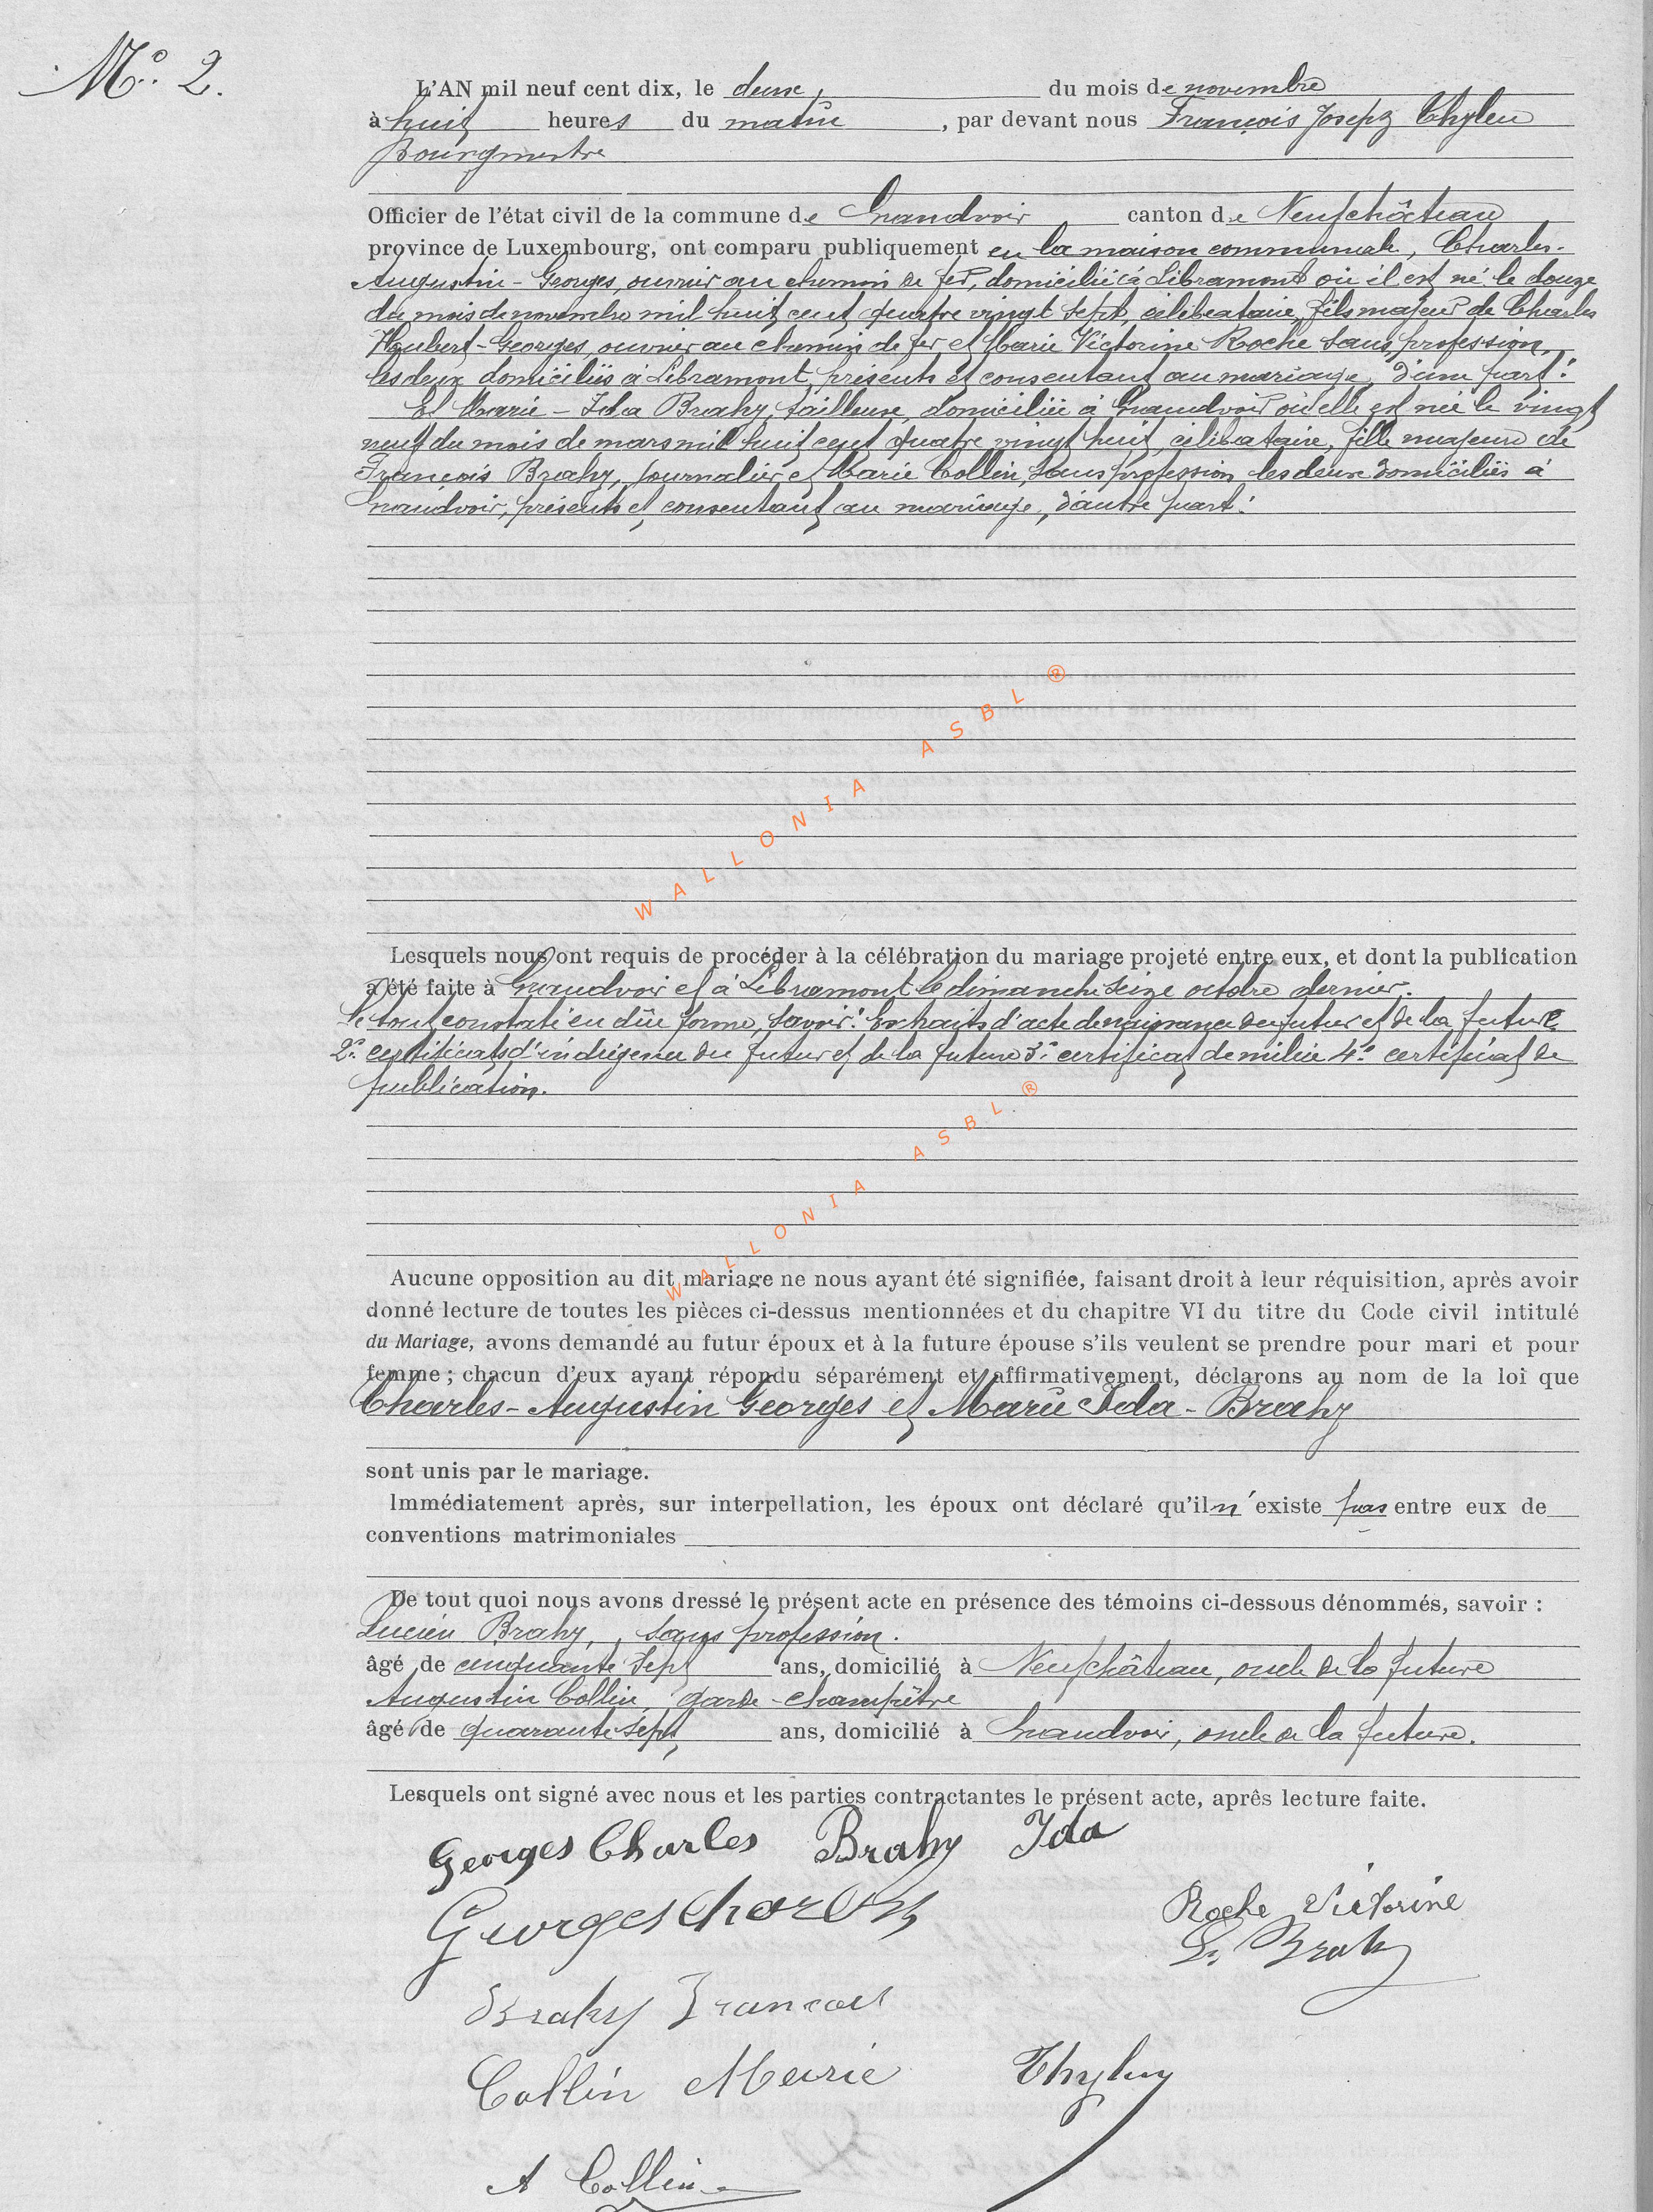 N°. 2.
L'AN mil neuf cent dix, le deux, du mois de novembre
à huit heures du matin, par devant nous François Joseph Thylen
Bourgmestre
Officier de l'état civil de la commune de Grandvoir canton de Neufchâteau
province de Luxembourg, ont comparu publiquement en la maison communale, Charles-
Augustin-Georges, ouvrier au chemin de fer, domicilié à Libramont où il est né le douze
du mois de novembre mil huit cent quatre vingt sept, célibataire, fils majeur de Charles
Hubert-Georges, ouvrier au chemin de fer et Marie Victorine Roche sans profession,
les deux domiciliés à Libramont, présents et consentant au mariage, d'une part:
Et Marie-Ida Brahy, tailleuse, domiciliée à Grandvoir où elle est née le vingt
neuf du mois de mars mil huit cent quatre vingt huit, célibataire, fille majeure de
François Brahy, journalier et Marie Collin, sans profession les deux domiciliés à
Grandvoir, présents et consentant au mariage, d'autre part:
Lesquels nous ont requis de procéder à la célébration du mariage projeté entre eux, et dont la publication
a été faite à Grandvoir et à Libramont le dimanche seize octobre dernier.
Le tout constaté en dûe forme, savoir: Extraits d'acte de naissance du futur et de la future
2° certificats d'indigence du futur et de la future 3° certificat de milice 4° certificat de
publication.
WALLONIA ASBL ®
WALLONIA ASBL ®
Aucune opposition au dit mariage ne nous ayant été signifiée, faisant droit à leur réquisition, après avoir
donné lecture de toutes les pièces ci-dessus mentionnées et du chapitre VI du titre du Code civil intitulé
du Mariage, avons demandé au futur époux et à la future épouse s'ils veulent se prendre pour mari et pour
femme ; chacun d'eux ayant répondu séparément et affirmativement, déclarons au nom de la loi que
Charles-Augustin Georges et Marie Ida-Brahy
sont unis par le mariage.
Immédiatement après, sur interpellation, les époux ont déclaré qu'il n'existe pas entre eux de
conventions matrimoniales
De tout quoi nous avons dressé le présent acte en présence des témoins ci-dessous dénommés, savoir :
Lucien Brahy, sans profession.
âgé de cinquante sept ans, domicilié à Neufchâteau, oncle de la future
Augustin Collin, garde-champêtre
âgé de quarante sept ans, domicilié à Grandvoir, oncle de la future.
Lesquels ont signé avec nous et les parties contractantes le présent acte, après lecture faite.
Georges Charles Brahy Ida
Georges Charles
Roche Victorine
L. Brahy
Brahy Francois
Collin Marie
Thylen
A Collin